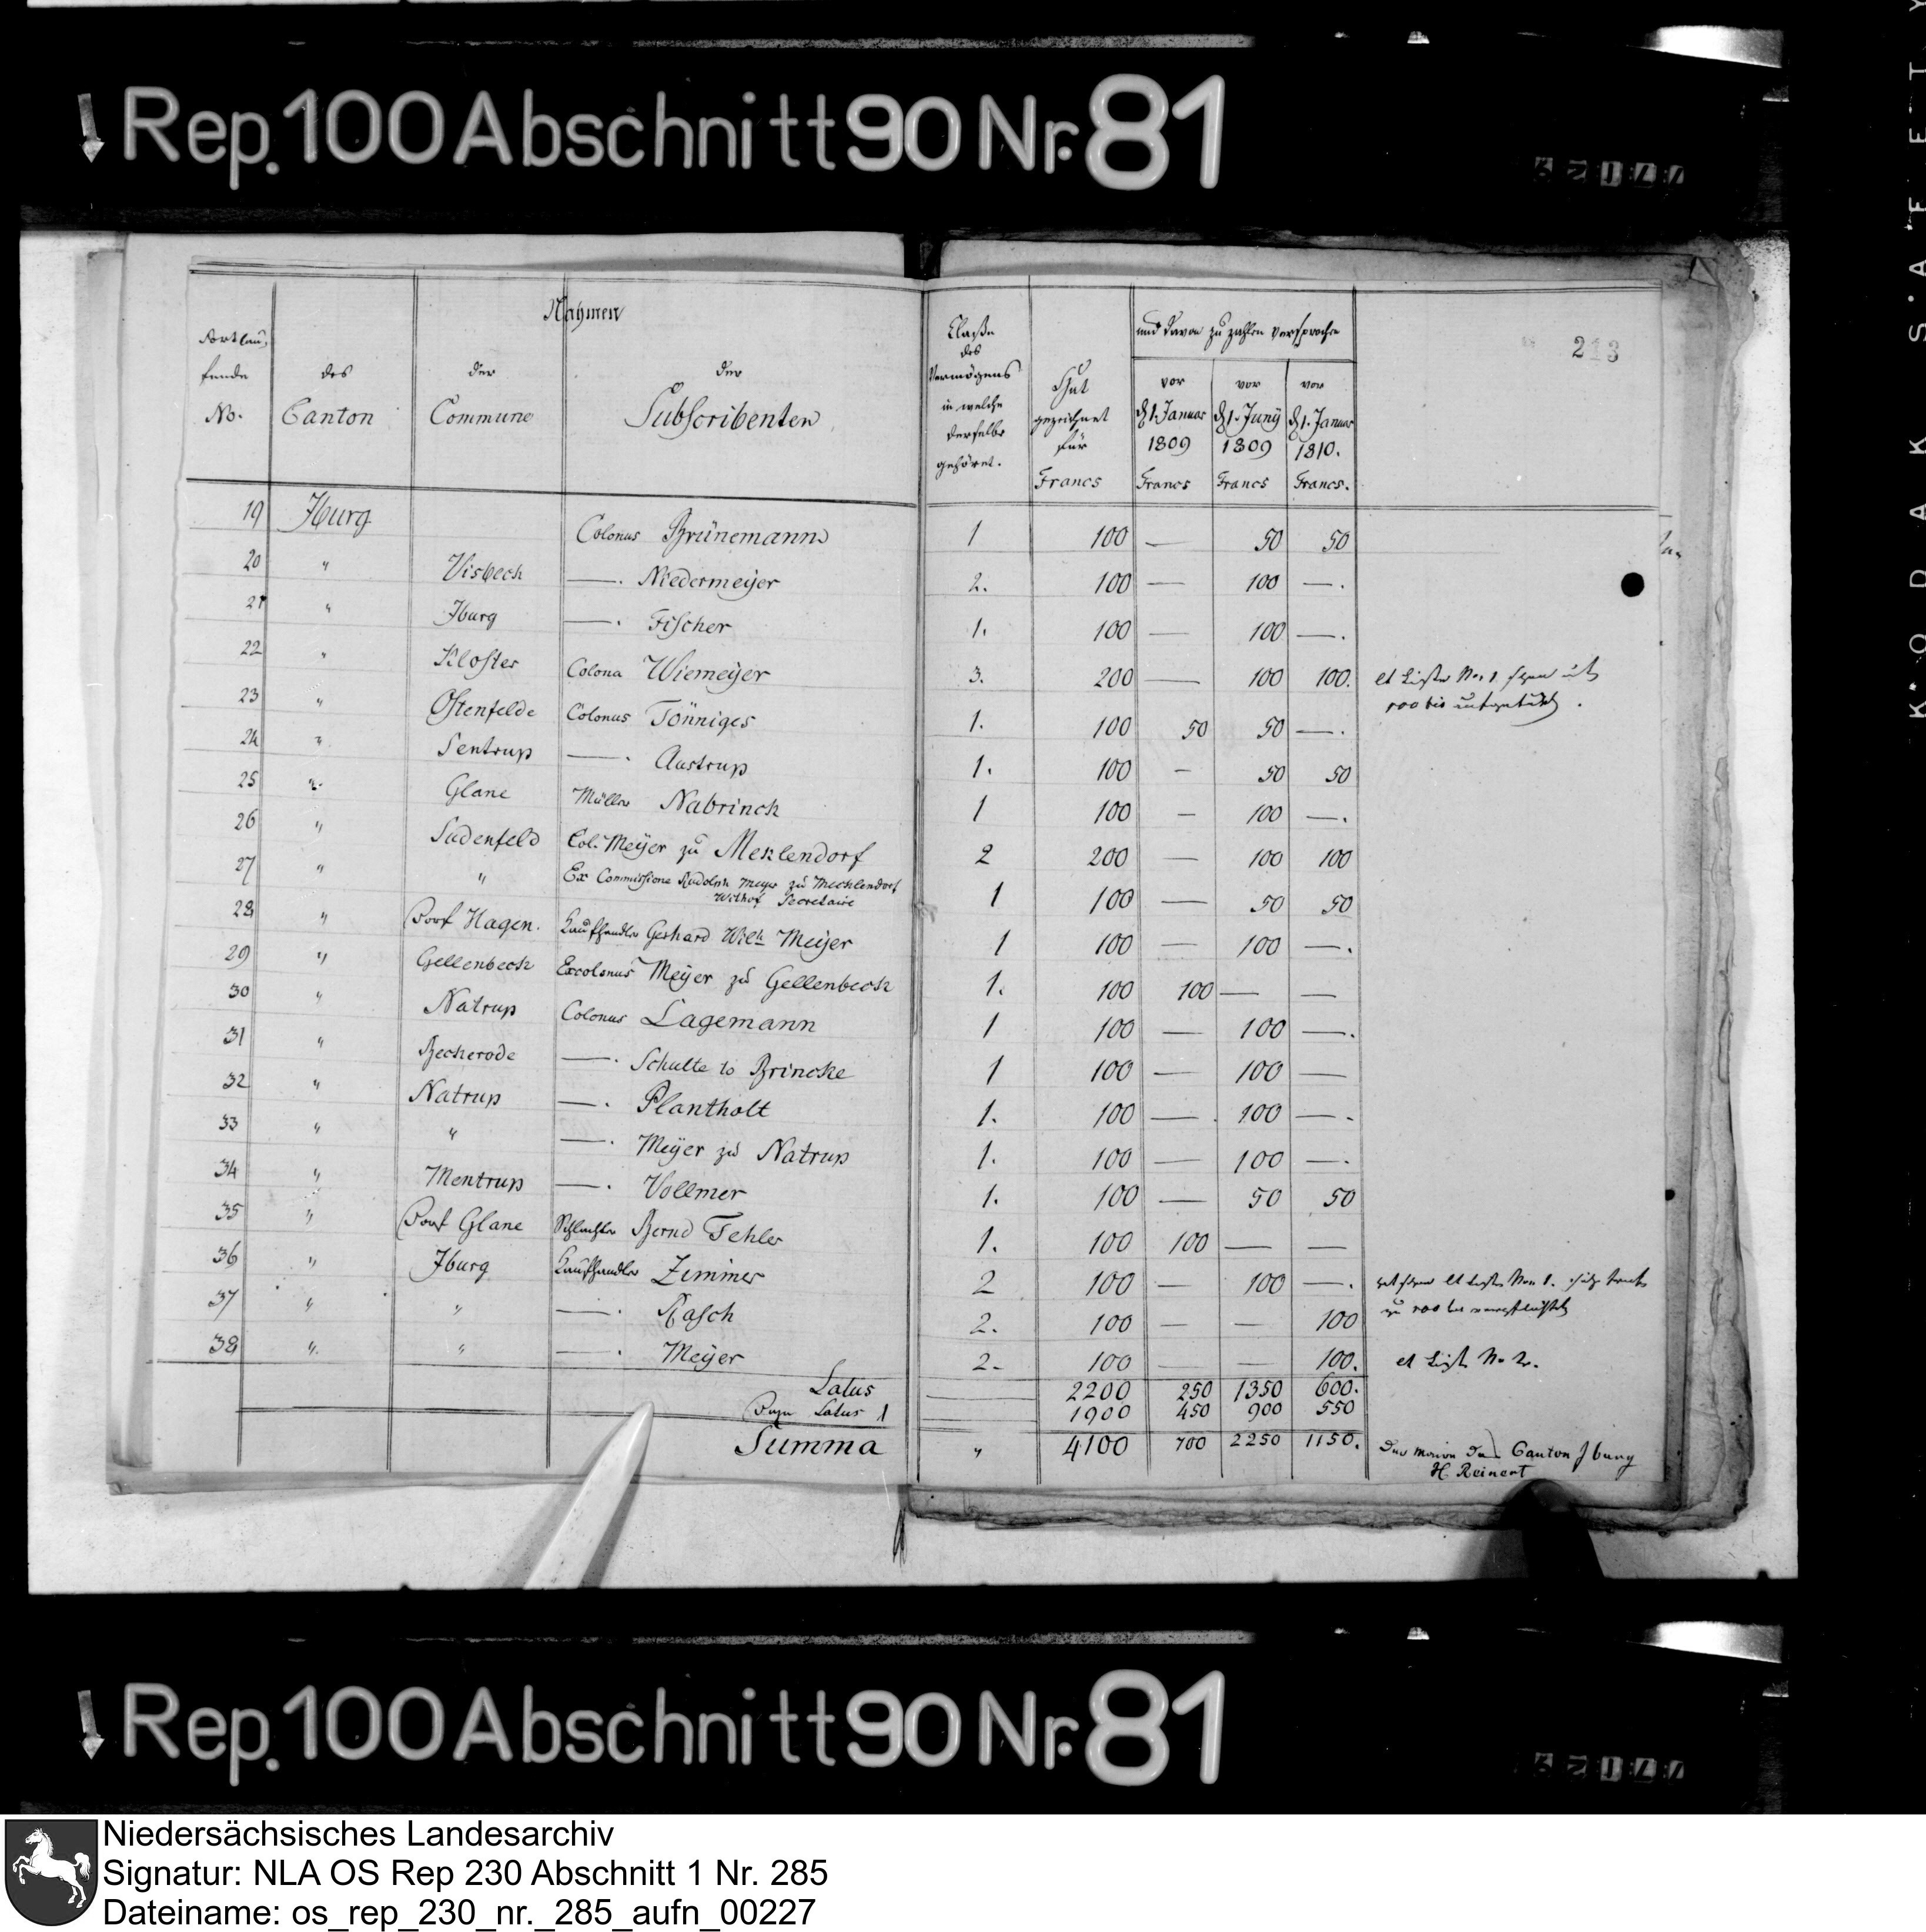 Rep. 100 Abschnitt 90 Nr. 81
213
Nahmen
und davon zu zahlen versprochen
Fortlau,
fende
No.
des
Canton
der
Commune
der
Subscribenten
Claße
des
Vermögens
in welche
derselbe
gehöret.
Hat
gezeichnet
für
Francs
vor
d 1. Januar
1809
Francs
vor
d 1. Juny
1809
Francs
vor
d 1. Januar
1810.
Francs.
19 Iburg Colonus Brünemann 1 100 — 50 50
20 " Visbeck —. Niedermeÿer 2. 100 — 100 —.
21 " Iburg —. Fischer 1. 100 — 100 —.
22 " Kloster Colona Wiemeÿer 3. 200 — 100 100. et Liste No. 1
23 " Ostenfelde Colonus Tönniges 1. 100 50 50 —.
24 " Sentrup —. Aastrup 1. 100 — 50 50
25 " Glane Müller Nabrinck 1 100 — 100 —.
26 " Sudenfeld Col. Meÿer zu Meklendorf 2 200 — 100 100
27 " " Ex Commissione Rudolph Meyer zu Mecklendorf
Withof Secretaire 1 100 — 50 50
28 " Dorf Hagen. Kaufhändler Gerhard Wilh Meÿer 1 100 — 100 —.
29 " Gellenbeck Excolonus Meÿer zu Gellenbeck 1. 100 100 — —
30 " Natrup Colonus Lagemann 1 100 — 100 —.
31 " Beckerode —. Schulte to Brincke 1 100 — 100 —
32 " Natrup —. Plantholt 1. 100 — 100 —.
33 " " —. Meÿer zu Natrup 1. 100 — 100 —.
34 " Mentrup —. Vollmer 1. 100 — 50 50
35 " Dorf Glane Schlachter Bernd Fehler 1. 100 100 — —
36 " Iburg Kaufhändler Zimmer 2 100 — 100 —.
37 " " —. Rasch 2. 100 — — 100
38 " " —. Meÿer 2. 100 — — 100. et Liste No 2.
Latus 2200 250 1350 600.
Dazu Latus 1 1900 450 900 550
Summa " 4100 700 2250 1150.
Der Maire des Canton Iburg
H. Reinert
Rep. 100 Abschnitt 90 Nr. 81
Niedersächsisches Landesarchiv
Signatur: NLA OS Rep 230 Abschnitt 1 Nr. 285
Dateiname: os_rep_230_nr._285_aufn_00227
KODAK SAFETY